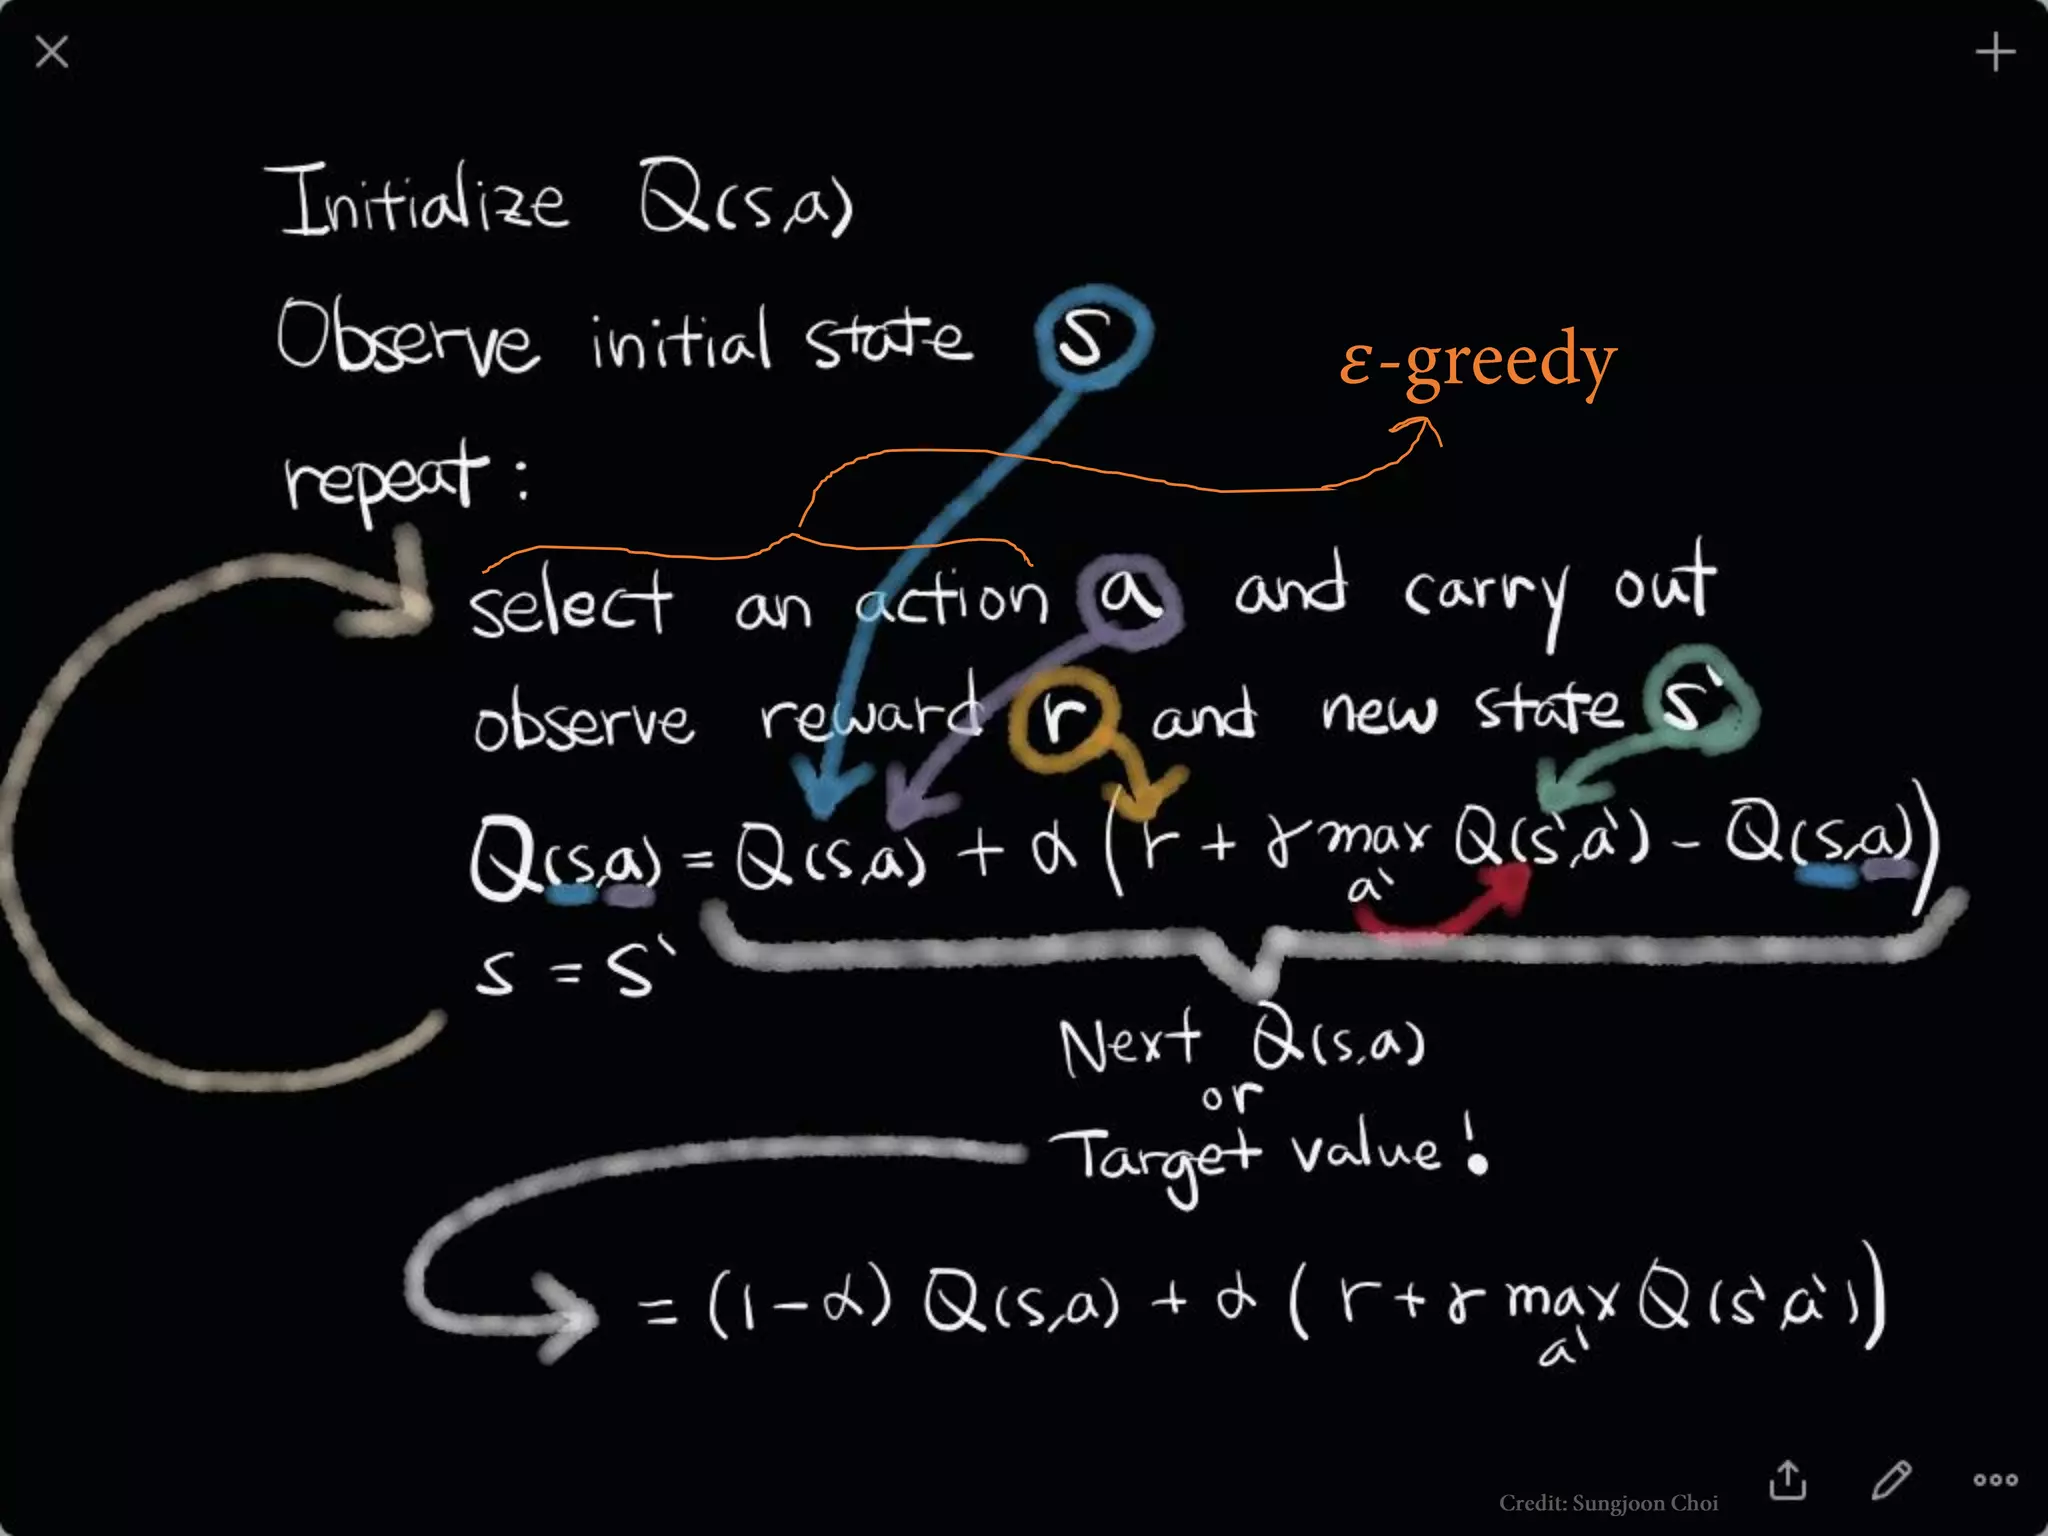 Initialize Q(s,a)
Observe initial state s
ε-greedy
repeat:
select an action a and carry out
observe reward r and new state s'
Q(s,a) = Q(s,a) + α(r + γ max Q(s',a') - Q(s,a))
a'
s = s'
Next Q(s,a)
or
Target value!
= (1-α) Q(s,a) + α(r+γ max Q(s',a'))
a'
Credit: Sungjoon Choi